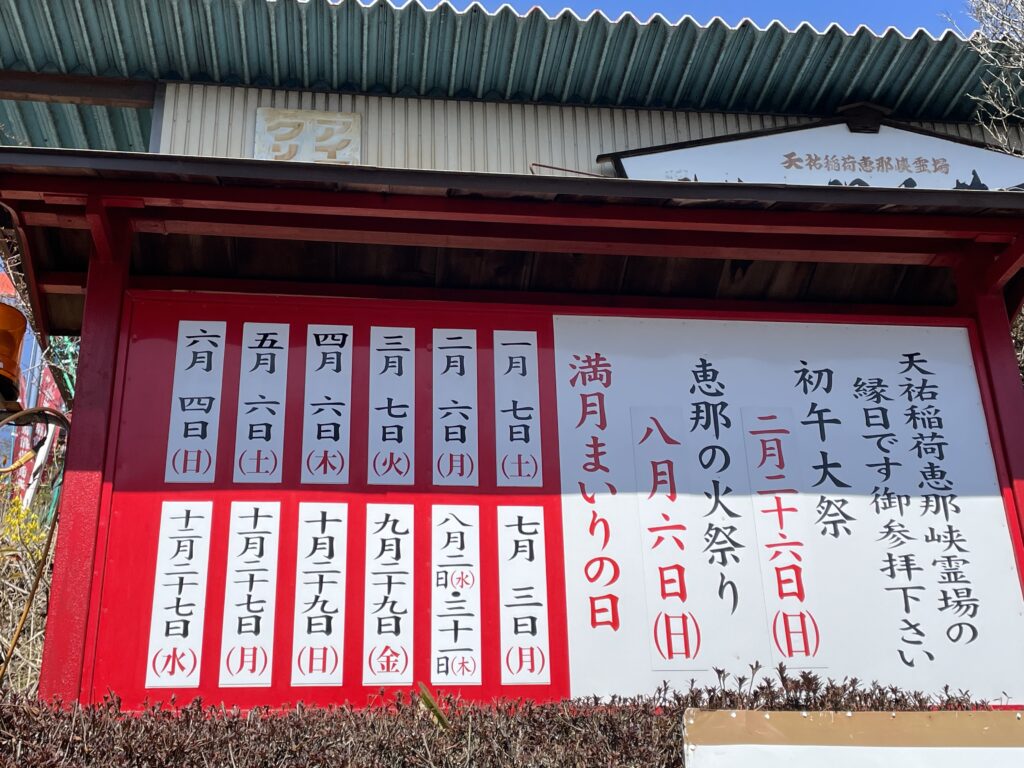 アイ
クリ
天祐稲荷恵那峡霊場
天祐稲荷恵那峡霊場の
縁日です御参拝下さい
初午大祭
二月二十六日(日)
恵那の火祭り
八月六日(日)
満月まいりの日
一月 七日(土)
二月 六日(月)
三月 七日(火)
四月 六日(木)
五月 六日(土)
六月 四日(日)
七月 三日(月)
八月二日(水)・三十一日(木)
九月二十九日(金)
十月二十九日(日)
十一月二十七日(月)
十二月二十七日(水)